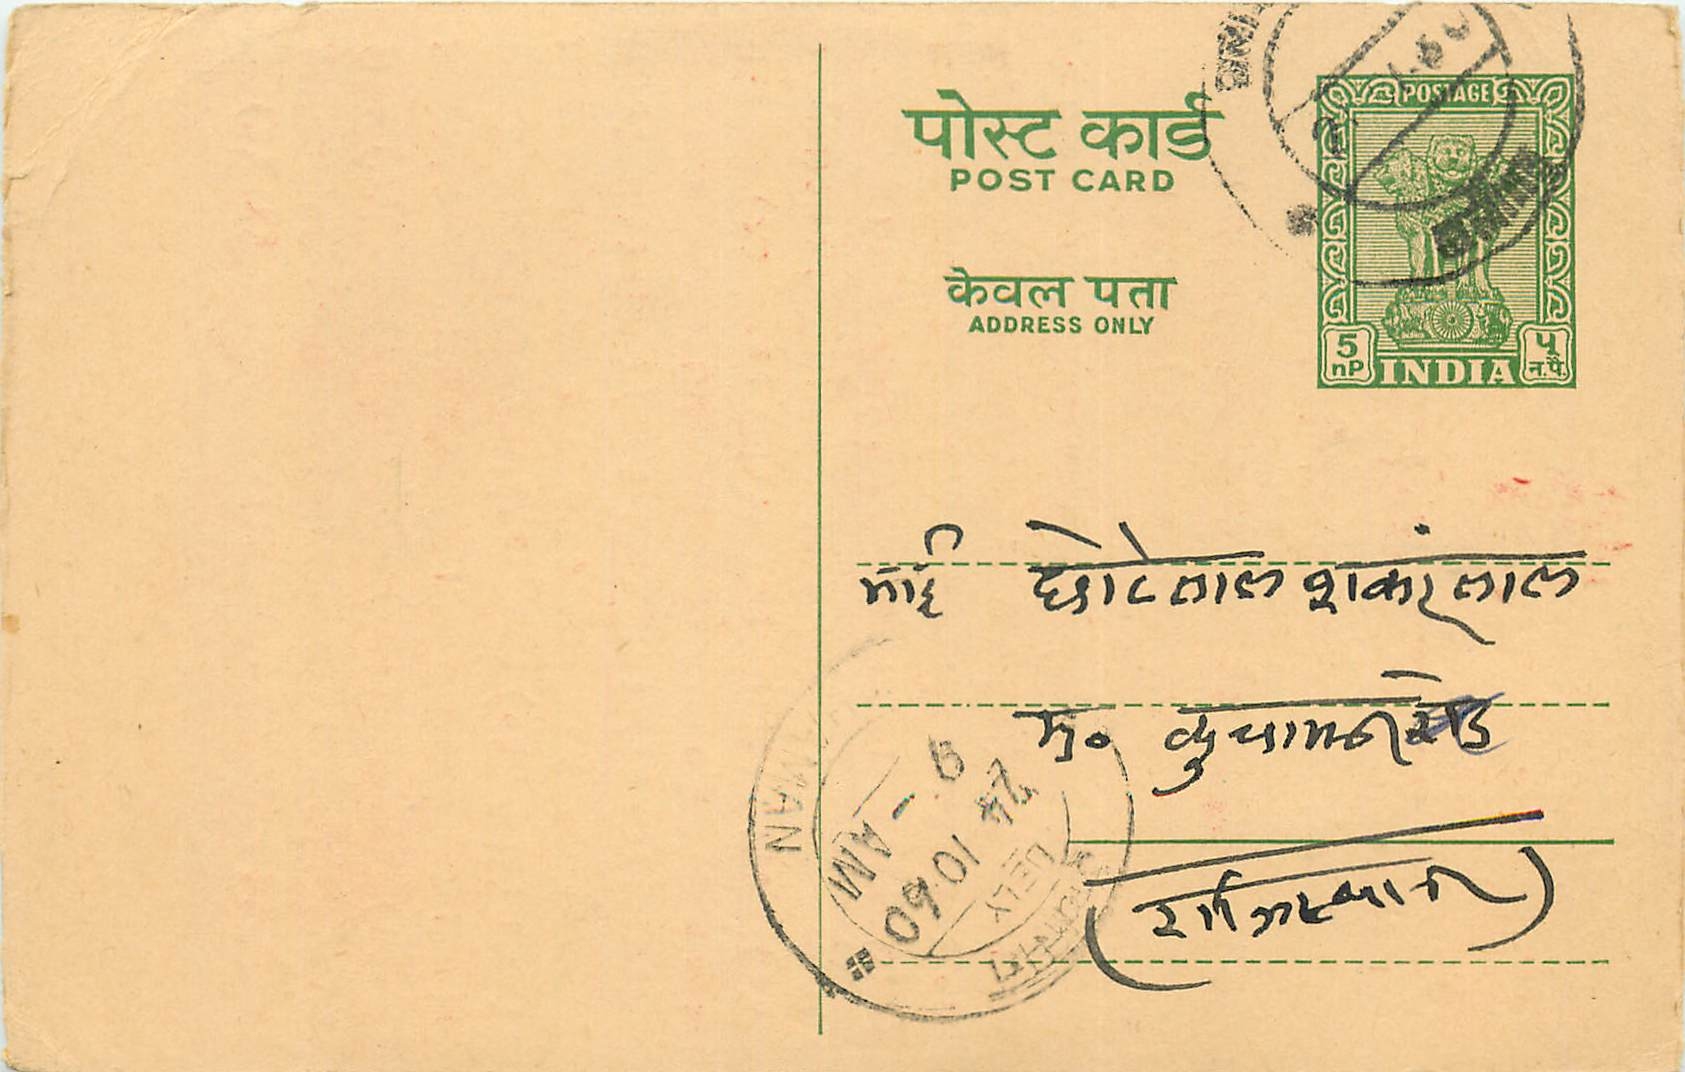 पोस्ट कार्ड
POST CARD
केवल पता
ADDRESS ONLY
POSTAGE
5 nP
INDIA
५ न.पै.
भाई छोटेलाल शंकरलाल
मु० कुचामन रोड
(राजस्थान)
9 - AM
24 10.60
DELY
MAN